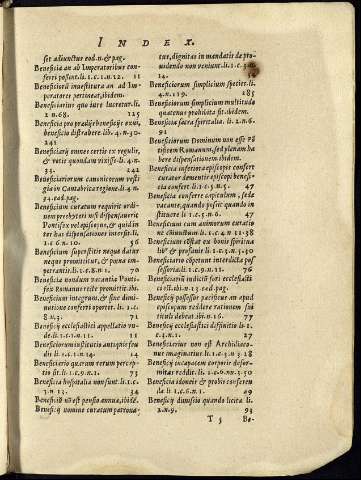 INDEX.
sit adiunctus eod.n.& pag.
Beneficia an ab Imperatoribus con-
ferri possint.li.1.c.1.n.12. 11
Beneficiorū inuestitura an ad Im-
peratores pertineat, ibidem.
Beneficiarius quo iure lucretur.li.
2.n.68. 125
Beneficia pro prædijs benefic. exus,
beneficio distrabere lib.4.n.30.
241
Beneficiarij omnes certis ex regulis,
& votis quondam vixisse.li.4.n.
35. 242
Beneficiatorum canonicorum vesti-
gia in Cantabrica regione.li.4.n.
34.eod.pag.
Beneficium curatum requirit ordi-
nem presbyteri nisi dispensauerit
Pontifex vel episcopus, & quid in
ter has dispensationes intersit.li.
1.c.6.n.10. 56
Beneficium superstitis neque datur
neque promittitur, & pœna im-
petrantis.li.1.c.8.n.1. 70
Beneficia nondum vacantia Ponti-
fex Romanus recte promittit.ibi.
Beneficium integrum, & sine dimi-
nutione conferri oportet. li.1.c.
8.n.3. 71
Beneficij ecclesiastici appellatio vn-
de.li.1.c.1.n.11. 11
Beneficiorum institutio antiqua secu-
di.li.1.c.1.n.14. 14
Beneficiario quarum rerum percep-
tio sit.li.1.c.9.n.1. 73
Beneficia hospitalia non sunt.li.1.c.
1.n.13. 34
Beneficiū nō est pensio annua, ibidē.
Beneficij nomine curatum patrona-
tus, dignitas in mandatis de pro-
uidendo non veniunt.li.1.c.5.n.
14.
Beneficiorum simplicium species.li.
4.n.119. 285
Beneficiorum simplicium multitudo
quatenus prohibita sit.ibidem.
Beneficia sacra spiritalia. li.2.n.6.
91
Beneficiorum Dominum non esse Pō
tificem Romanum, sed plenam ha
bere dispensationem.ibidem.
Beneficia inferior episcopis confert
curator dementis episcopi benefi-
cia confert.li.1.c.5.n.5. 47
Beneficia conferre capitulum, sede
vacante, quando possit quando in
stituere li.1.c.5.n.6. 47
Beneficium cum animorum curatio
ne chiunctum li.1.c.4.n.11.38
Beneficium cōstat ex bonis spiritua
lib° & profanis.li.1.c.3.n.1.30
Beneficiario competunt interdicta pos
sessoria.li.1.c.9.n.11. 76
Beneficiarij iudicij fori ecclesiasti
ci est.ibi.n.13.eod.pag.
Beneficij possessor pacificus an apud
episcopum reddere rationem sui
tituli debeat.ibi.n.16. 77
Beneficij ecclesiastici definitio li.1.
c.3.n.1. 27
Beneficiarius non est Archidiaco-
nus imaginarius li.1.c.3.n.3.28
Beneficij incapacem corporis defor-
mitas reddit.li.1.c.6.nu.3.52
Beneficia idoneis & probis conferen
da li.1. 49
Beneficij diuisio quando licita li.
2.n.9. 93
T 5 Be-